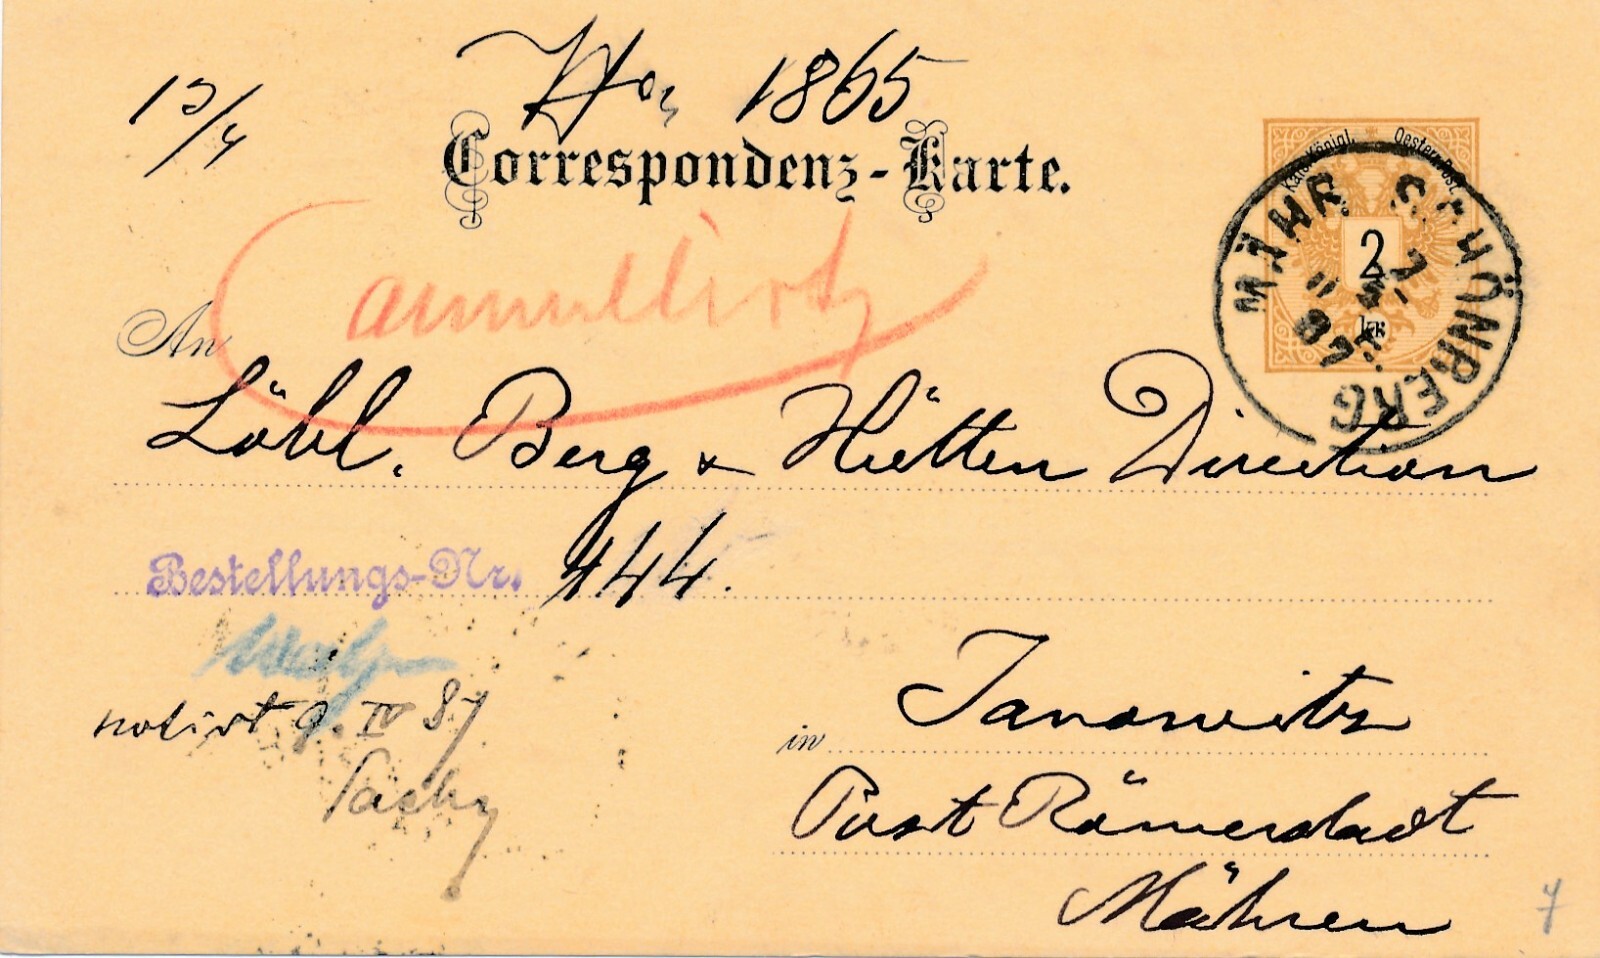 15/4
No, 1865
Correspondenz-Karte.
Kais. Königl. Oesterr. Post
2
kr.
MÄHR. SCHÖNBERG
7
4
87
annullirt
An
Löbl. Berg & Hütten Direction
Bestellungs-Nr. 144.
notirt 9. IV 87
in Janowitz
Post Römerstadt
Mähren
7